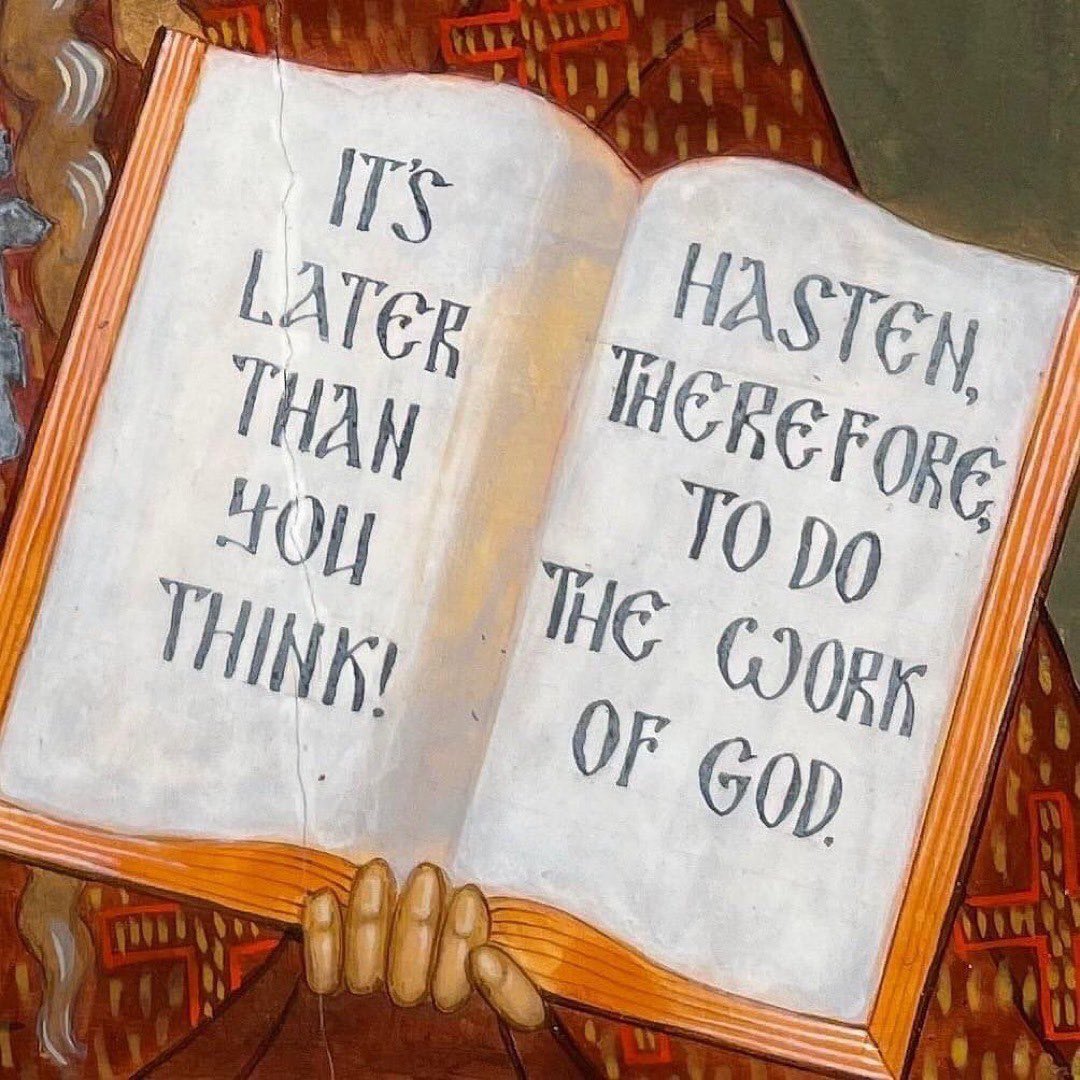 IT'S
LATER
THAN
YOU
THINK!
HASTEN,
THEREFORE,
TO DO
THE WORK
OF GOD.